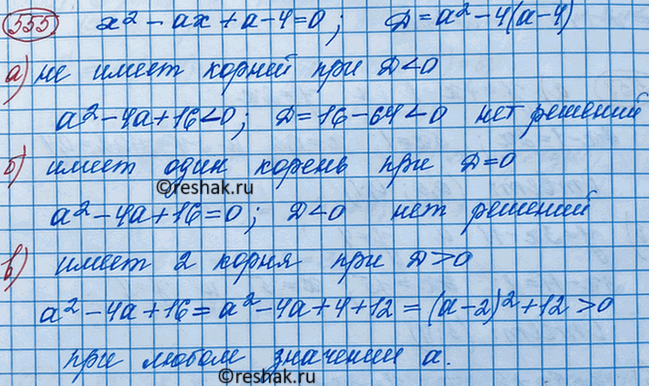 555 x² - ax + a - 4 = 0; D = a² - 4(a - 4)
а) не имеет корней при D < 0
a² - 4a + 16 < 0; D = 16 - 64 < 0 нет решений
б) имеет один корень при D = 0
©reshak.ru
a² - 4a + 16 = 0; D < 0 нет решений
в) имеет 2 корня при D > 0
a² - 4a + 16 = a² - 4a + 4 + 12 = (a - 2)² + 12 > 0
при любом значении a.
©reshak.ru